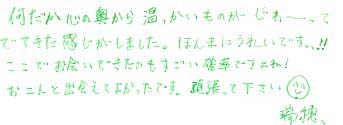 何だか心の奥から温、かいものが じわーーって
でてきた感じがしました。ほんまにうれしいです、、!!
ここでお会いできたのもすごい確率ですよね!
おこんと出会えてよかったです。頑張って下さい
瑞穂、